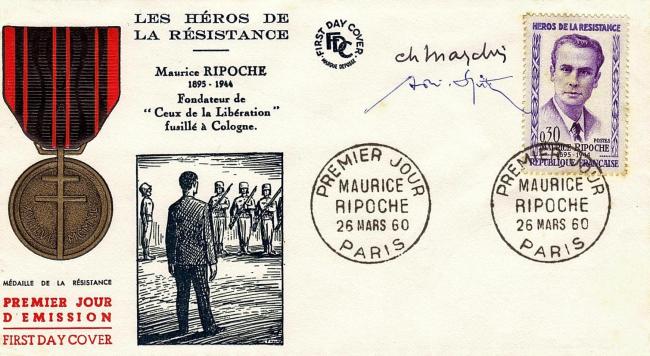 LES HÉROS DE
LA RÉSISTANCE
Maurice RIPOCHE
1895 - 1944
Fondateur de
“ Ceux de la Libération ”
fusillé à Cologne.
FIRST DAY COVER
FDC
MARQUE DEPOSEE
HEROS DE LA RESISTANCE
0,30
POSTES
MAURICE RIPOCHE
1895-1944
REPUBLIQUE FRANÇAISE
PREMIER JOUR
MAURICE
RIPOCHE
26 MARS 60
PARIS
PREMIER JOUR
MAURICE
RIPOCHE
26 MARS 60
PARIS
MÉDAILLE DE LA RÉSISTANCE
PREMIER JOUR
D'EMISSION
FIRST DAY COVER